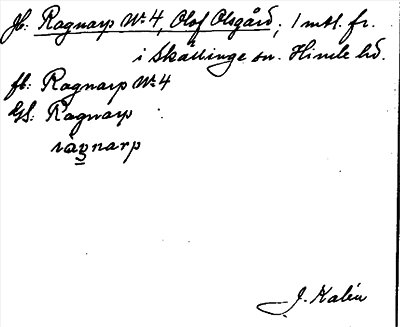 Jb: Ragnarp Nr 4, Olof Olsgård, 1 mtl. fr.
i Skällinge sn. Himle hd.
fb: Ragnarp Nr 4
GS: Ragnarp
ràgnarp
J. Kalén